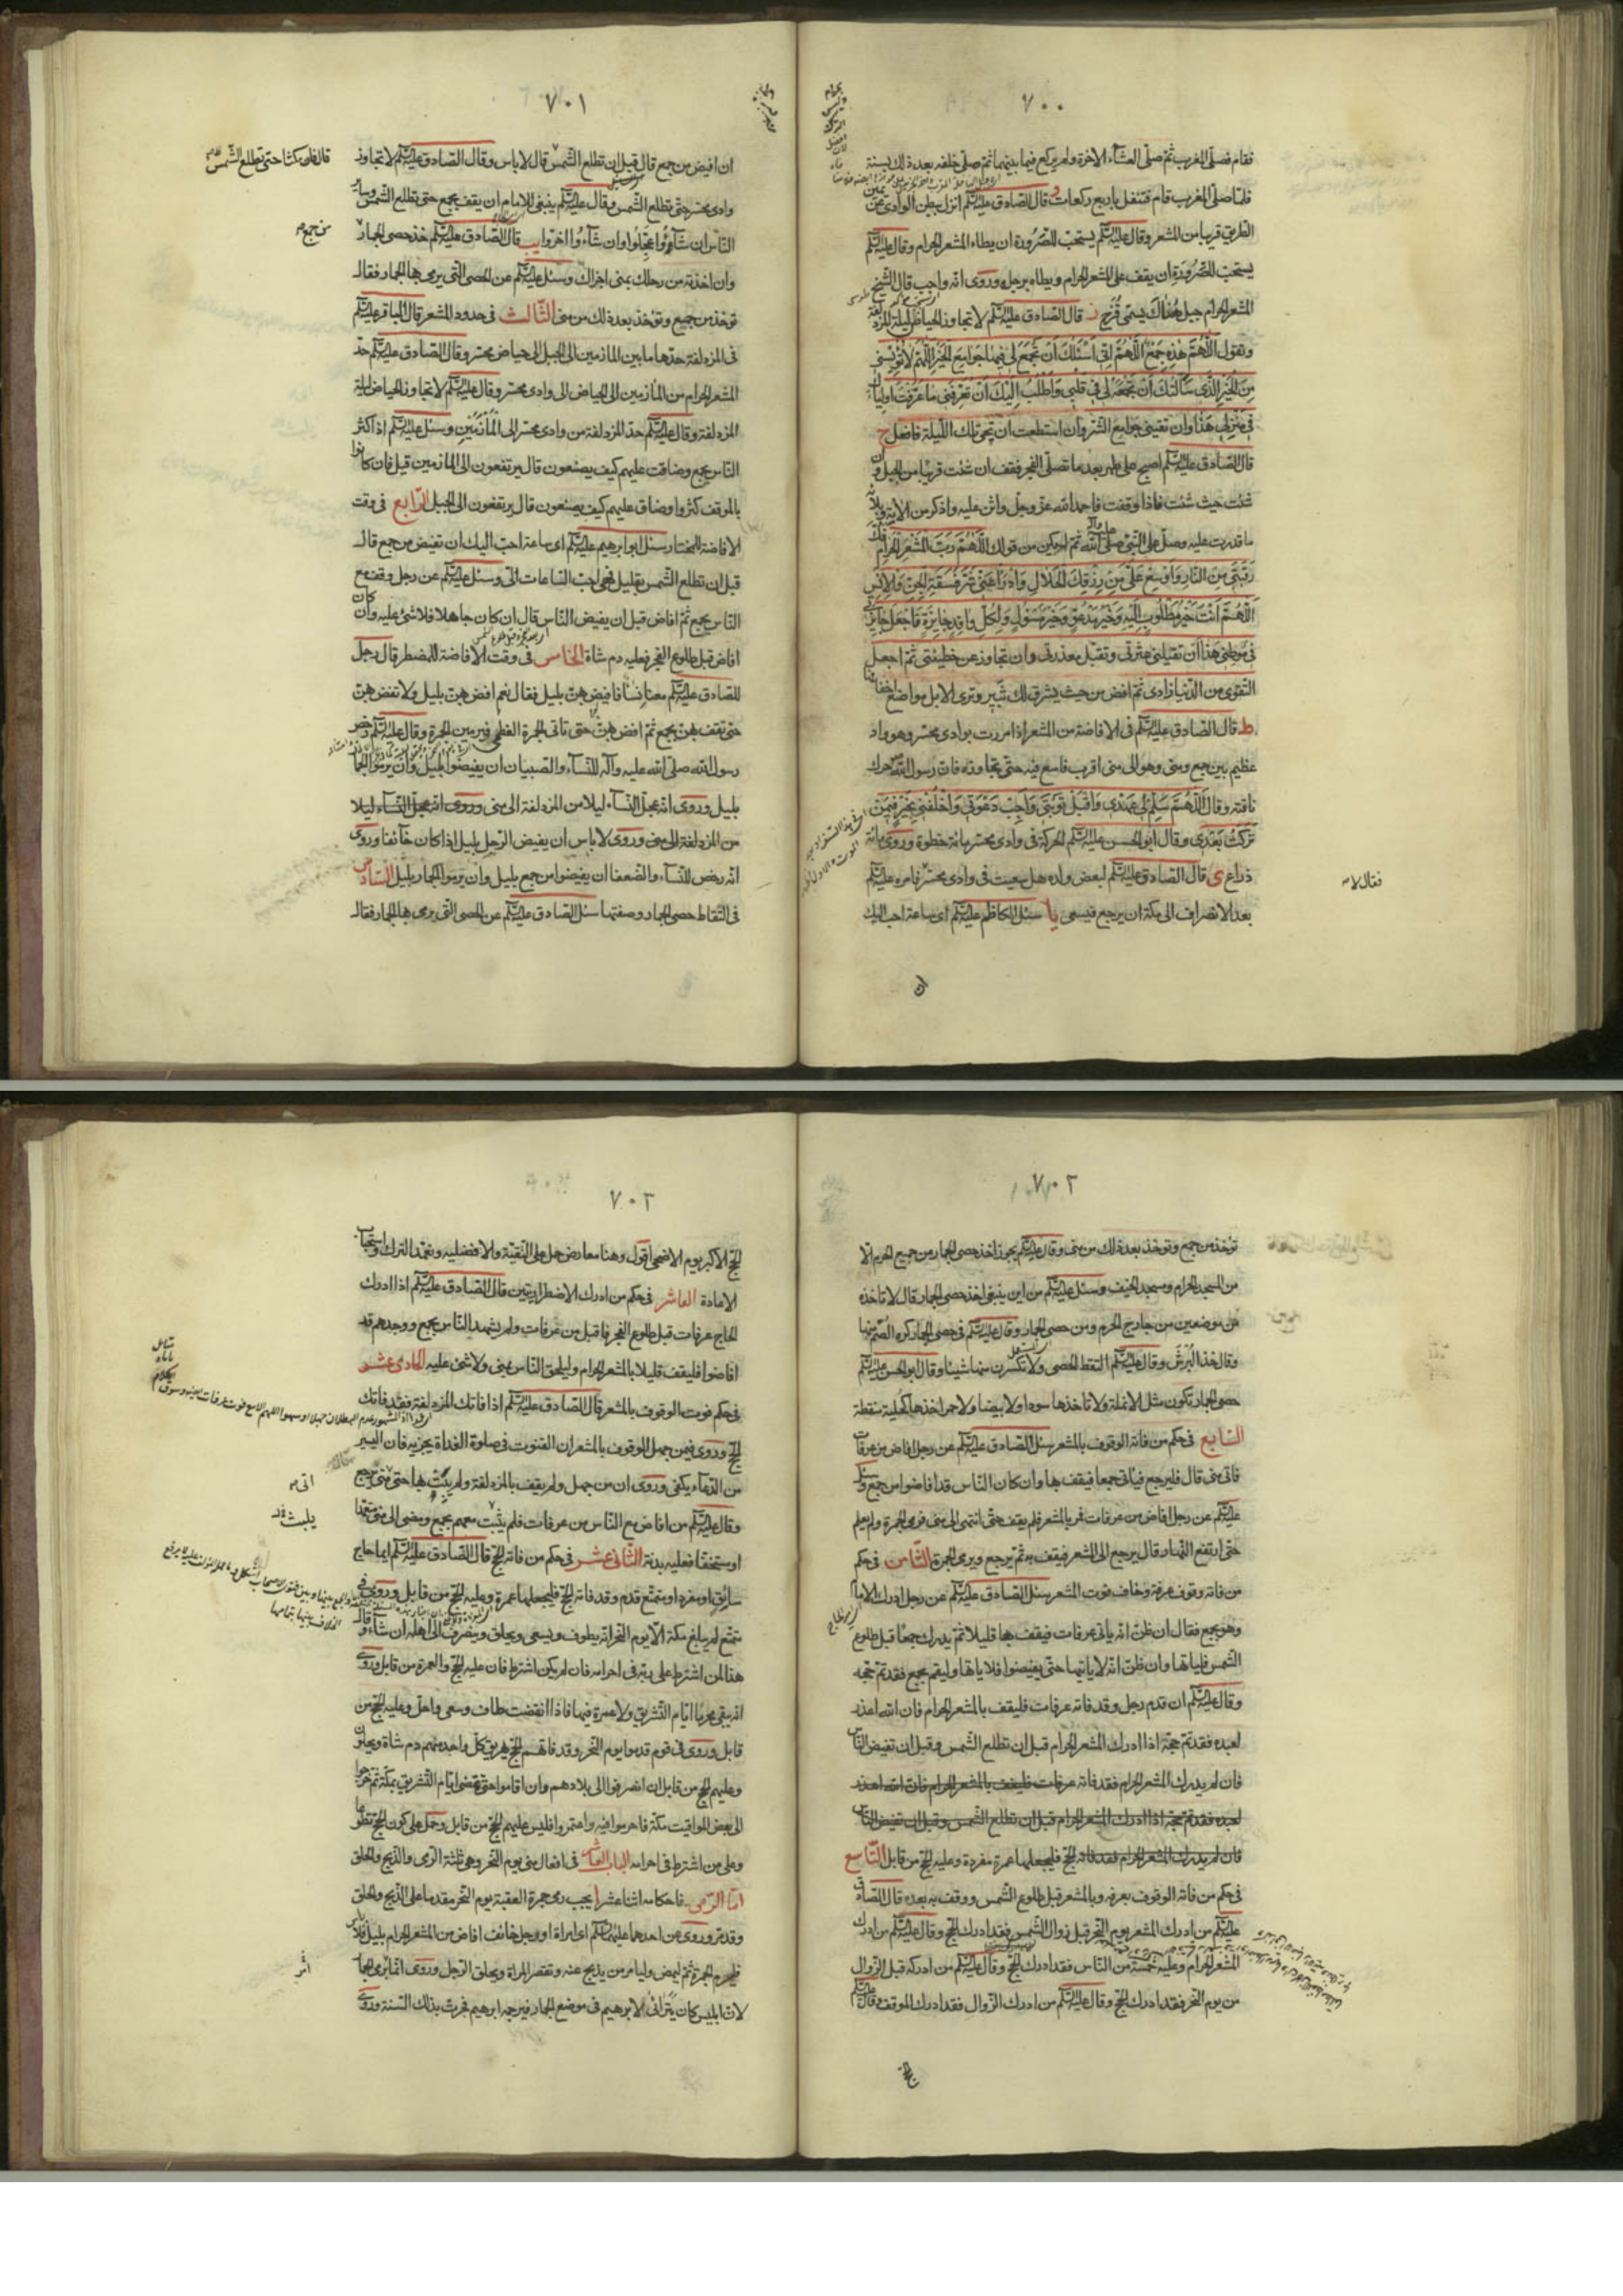 ٧٠٠
فقام فصلّى المغرب ثمّ صلّى العشاء الاخرة ولم يركع فيما بينهما ثمّ صلّى خلفه بعد ذلك بسنة
فلمّا صلّى المغرب قام فتنفل باربع ركعات و قال الصّادق عليه السلم انزل ببطن الوادى عن يمين
الطّريق قريبا من المشعر وقال عليه السلم يستحبّ للصّرورة ان يطاء المشعر الحرام وقال عليه السلم
يستحبّ للصّرورة ان يقف على المشعر الحرام ويطاه برجله وروى انّه واجب قال الشّيخ
المشعر الحرام جبل هناك يسمّى قُزَح ز قال الصّادق عليه السلم لا تجاوز الحياض ليلة المزدلفة
وتقول اللّهمّ هذه جَمْعُ اللّهمّ انّى اسئلك ان تجمع لى فيها جوامع الخير اللّهمّ لا تؤيسنى
من الخير الّذى سألتك ان تجمعه لى فى قلبى واطلب اليك ان تعرّفنى ما عرّفت اولياءك
فى منزلى هذا وان تقينى جوامع الشّر وان استطعت ان تحيى تلك اللّيلة فافعل ح
قال الصّادق عليه السلم اصبح على طهر بعد ما تصلّى الفجر فقف ان شئت قريبا من الجبل وان
شئت حيث شئت فاذا وقفت فاحمد الله عزّ وجلّ واثن عليه واذكر من الائه وبلائه
ما قدرت عليه وصلّ على النّبىّ صلى الله عليه وآله ثمّ ليكن من قولك اللّهمّ ربّ المشعر الحرام فك
رقبتى من النّار واوسع علىّ من رزقك الحلال وادرأ عنّى شرّ فسقة الجنّ والانس
اللّهمّ انت خير مطلوب اليه وخير مدعوّ وخير مسئول ولكلّ وافد جايزة فاجعل جايزتى
فى موطنى هذا ان تقيلنى عثرتى وتقبل معذرتى وان تجاوز عن خطيئتى ثمّ اجعل
التّقوى من الدّنيا زادى ثمّ افض من حيث يشرق لك ثبير وترى الابل مواضع اخفافها
ط قال الصّادق عليه السلم فى الافاضة من المشعر اذا مررت بوادى محسّر وهو واد
عظيم بين جمع ومنى وهو الى منى اقرب فاسع فيه حتّى تجاوزه فان رسول الله حرك
ناقته وقال اللّهمّ سلم لى عهدى واقبل توبتى واجب دعوتى واخلفنى بخير فيمن
تركت بعدى وقال ابو الحسن عليه السلم الحركة فى وادى محسّر مائة خطوة وروى مائة
ذراع ى قال الصّادق عليه السلم لبعض ولده هل سعيت فى وادى محسّر فامره عليه السلم
فقال لا
بعد الانصراف الى مكّة ان يرجع فيسعى يا سئل الكاظم عليه السلم اى ساعة احبّ اليك
ان
٧٠١
ان افيض من جمع قال قبل ان تطلع الشّمس قال لا باس وقال الصّادق عليه السلم لا تجاوز
قال فان مكثنا حتى تطلع الشّمس
وادى محسّر حتّى تطلع الشّمس وقال عليه السلم ينبغى للامام ان يقف بجمع حتّى تطلع الشّمس وساير
النّاس ان شاؤا عجّلوا وان شاءوا اخّروا يب قال الصّادق عليه السلم خذ حصى الجمار
من جمع
وان اخذته من رحلك بمنى اجزاك وسئل عليه السلم عن الحصى الّتى يرمى بها الجمار فقال
توخذ من جميع وتؤخذ بعد ذلك من منى الثّالث فى حدود المشعر قال الباقر عليه السلم
فى المزدلفة حدّها ما بين المازمين الى الجبل الى حياض محسّر وقال الصّادق عليه السلم حدّ
المشعر الحرام من المازمين الى الحياض الى وادى محسّر وقال عليه السلم لا تجاوز الحياض ليلة
المزدلفة وقال عليه السلم حدّ المزدلفة من وادى محسّر الى المأزمين وسئل عليه السلم اذا كثر
النّاس بجمع وضاقت عليهم كيف يصنعون قال يرتفعون الى المازمين قيل فان كانوا
بالموقف كثروا وضاق عليهم كيف يصنعون قال يرتفعون الى الجبل الرّابع فى وقت
الافاضة للمختار سئل ابو ابرهيم عليه السلم اى ساعة احبّ اليك ان تفيض من جمع قال
قبل ان تطلع الشّمس بقليل فهى احبّ السّاعات الىّ وسئل عليه السلم عن رجل وقف مع
النّاس بجمع ثمّ افاض قبل ان يفيض النّاس قال ان كان جاهلا فلا شئ عليه وان كان
افاض قبل طلوع الفجر فعليه دم شاة الخامس فى وقت الافاضة للمضطر قال رجل
للصّادق عليه السلم معنا نساء فافيض بهنّ بليل فقال نعم افض بهنّ بليل ولا تفض بهنّ
حتّى تقف بهنّ بجمع ثمّ افض بهنّ حتى تاتى الجمرة العظمى فيرمين الجمرة وقال عليه السلم رخّص
رسول الله صلّى الله عليه وآله للنّساء والصبيان ان يفيضوا بليل وان يرموا الجمار
بليل وروى انّه عجّل النّساء ليلا من المزدلفة الى منى وروى انه عجل النّساء ليلا
من المزدلفة الى منى وروى لا باس ان يفيض الرّجل بليل اذا كان خائفا وروى
انّه رخّص للنّساء والضّعفا ان يفيضوا من جمع بليل وان يرموا الجمار بليل السّادس
فى التقاط حصى الجمار وصفتها سئل الصّادق عليه السلم عن الحصى الّتى يرمى بها الجمار فقال
٧٠٢
توخذ من جمع وتوخذ بعد ذلك من منى وقال عليه السلم يجوز اخذ حصى الجمار من جميع الحرم الّا
من المسجد الحرام ومسجد الخيف وسئل عليه السلم من اين ينبغى اخذ حصى الجمار قال لا تاخذه
من موضعين من خارج الحرم ومن حصى الجمار وقال عليه السلم فى حصى الجمار كره الصّم منها
وقال خذ البُرش وقال عليه السلم التقط الحصى ولا تكسرن منها شيئا وقال ابو الحسن عليه السلم
حصى الجمار تكون مثل الانملة ولا تاخذها سودا ولا بيضا ولا حمرا خذها كحلية منقطة
السّابع فى حكم من فاته الوقوف بالمشعر سئل الصّادق عليه السلم عن رجل افاض من عرفات
فاتى منى قال فليرجع فياتى جمعا فيقف بها وان كان النّاس قد افاضوا من جمع وسئل
عليه السلم عن رجل افاض من عرفات فمرّ بالمشعر فلم يقف حتّى انتهى الى منى فرمى الجمرة ولم يعلم
حتّى ارتفع النّهار قال يرجع الى المشعر فيقف به ثمّ يرجع ويرمى الجمرة الثّامن فى حكم
من فاته وقوف عرفة وخاف فوت المشعر سئل الصّادق عليه السلم عن رجل ادرك الامام
وهو بجمع فقال ان ظنّ انّه ياتى عرفات فيقف بها قليلا ثمّ يدرك جمعا قبل طلوع
الشّمس فلياتها وان ظنّ انّه لا ياتيها حتّى يفيضوا فلا ياتها وليقم بجمع فقد تمّ حجّه
وقال عليه السلم ان قدم رجل وقد فاته عرفات فليقف بالمشعر الحرام فان الله اعذر
لعبده فقد تمّ حجّه اذا ادرك المشعر الحرام قبل ان تطلع الشّمس وقبل ان تفيض النّاس
فان لم يدرك المشعر الحرام فقد فاته عرفات فليقف بالمشعر الحرام فان الله اعذر
لعبده فقد تم حجّه اذا ادرك المشعر الحرام قبل ان تطلع الشّمس وقبل ان تفيض النّاس
فان لم يدرك المشعر الحرام فقد فاته الحجّ فليجعلها عمرة مفردة وعليه الحجّ من قابل التّاسع
فى حكم من فاته الوقوف بعرفه وبالمشعر قبل طلوع الشّمس ووقف به بعده قال الصّادق
عليه السلم من ادرك المشعر يوم النّحر قبل زوال الشّمس فقد ادرك الحجّ وقال عليه السلم من ادرك
المشعر الحرام وعليه خمسة من النّاس فقد ادرك الحجّ وقال عليه السلم من ادركه قبل الزّوال
من يوم النّحر فقد ادرك الحجّ وقال عليه السلم من ادرك الزّوال فقد ادرك الموقف وقال عليه السلم
الحجّ
٧٠٣
الحجّ الاكبر يوم الاضحى اقول وهنا معارض حمل على التّقيّة والافضليه وتعمّد التّرك واستحباب
الاعادة العاشر فى حكم من ادرك الاضطراريّين قال الصّادق عليه السلم اذا ادرك
الحاج عرفات قبل طلوع الفجر فاقبل من عرفات ولم يشهد النّاس بجمع ووجدهم قد
افاضوا فليقف قليلا بالمشعر الحرام وليلحق النّاس بمنى ولا شئ عليه الحادى عشر
فى حكم فوت الوقوف بالمشعر قال الصّادق عليه السلم اذا فاتك المزدلفة فقد فاتك
الحجّ وروى فيمن جهل الوقوف بالمشعر ان القنوت فى صلوة الغداة يجزيه فان اليسير
من الدّعاء يكفى وروى ان من جهل ولم يقف بالمزدلفة ولم يبت بها حتى اتى منى يرجع
وقال عليه السلم من افاض مع النّاس من عرفات فلم يثبت معهم بجمع ومضى الى منى متعمّدا
يلبث
او مستخفّا فعليه بدنة الثّانى عشر فى حكم من فاته الحجّ قال الصّادق عليه السلم ايما حاج
سائق او مفرد او متمتّع قدم وقد فاته الحجّ فليجعلها عمرة وعليه الحجّ من قابل وروى فى
متمتّع لم يبلغ مكّة الّا يوم النّحر انّه يطوف ويسعى ويحلق وينصرف الى اهله ان شاء وقال
هذا لمن اشترط على ربّه فى احرامه فان لم يكن اشترط فان عليه الحجّ والعمرة من قابل وروى
انّه يبقى محرما ايّام التّشريق ولا عمرة فيها فاذا انقضت طاف وسعى واحلّ وعليه الحجّ من
قابل وروى فى قوم قدموا يوم النّحر وقد فاتهم الحجّ يهريق كلّ واحد منهم دم شاة ويحلق
وعليهم الحجّ من قابل ان انصرفوا الى بلادهم وان اقاموا حتّى تمضى ايّام التّشريق بمكّة ثمّ خرجوا
الى بعض المواقيت مكّة فاحرموا فيه واعتمروا فليس عليهم الحجّ من قابل وحمل على كون الحجّ تطوّعا
وعلى من اشترط فى احرامه الباب العاشر فى افعال منى يوم النّحر وهى ثلثة الرّمى والذّبح والحلق
امّا الرّمى فاحكامه اثنا عشر ا يجب رمى جمرة العقبة يوم النّحر مقدما على الذّبح والحلق
وقد مرّ وروى عن احدهما عليهما السلم اى امراة او رجل خائف افاض من المشعر الحرام بليل فلا باس
فليرم الجمرة ثمّ ليمض وليامر من يذبح عنه وتقصر المراة ويحلق الرّجل وروى انّما يرمى الجمار
لان ابليس كان يترائى لابرهيم فى موضع الجمار فيرجمه ابرهيم فجرت بذلك السّنة وروى